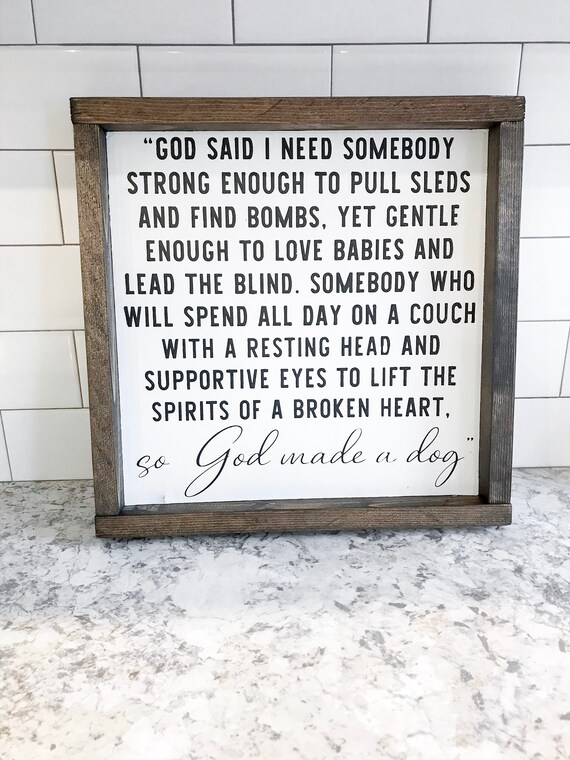 “GOD SAID I NEED SOMEBODY
STRONG ENOUGH TO PULL SLEDS
AND FIND BOMBS, YET GENTLE
ENOUGH TO LOVE BABIES AND
LEAD THE BLIND. SOMEBODY WHO
WILL SPEND ALL DAY ON A COUCH
WITH A RESTING HEAD AND
SUPPORTIVE EYES TO LIFT THE
SPIRITS OF A BROKEN HEART,
so God made a dog”